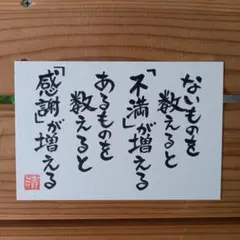 ないものを
数えると
「不満」が増える
あるものを
数えると
「感謝」が増える